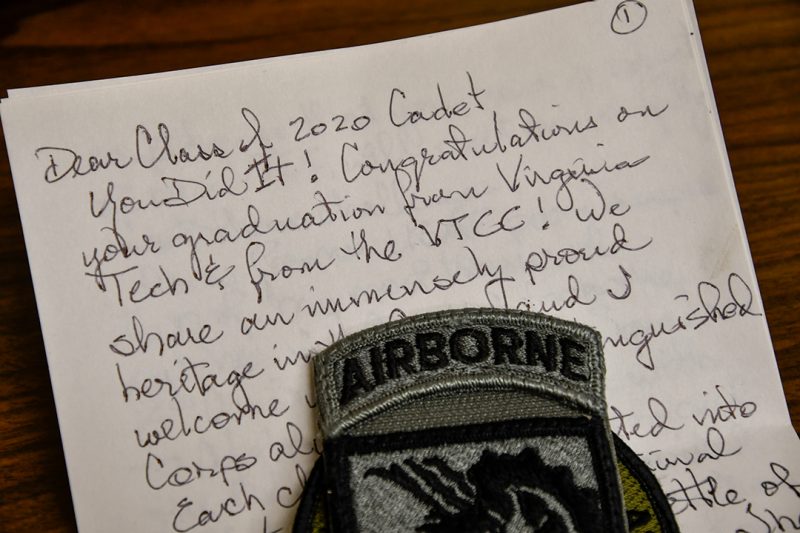 1
Dear Class of 2020 Cadet
You Did It! Congratulations on
your graduation from Virginia
Tech & from the VTCC! We
share an immensely proud
heritage in and I
welcome
Corps
Each
AIRBORNE
into
of